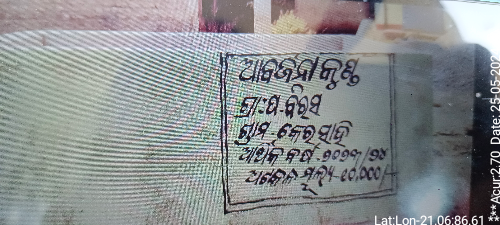 ଆବର୍ଜନା କୁଣ୍ଡ
ଗ୍ରା.ପ.ବିରସ
ଗ୍ରାମ-କେରସାହି
ଆର୍ଥିକ ବର୍ଷ-୨୦୨୩/୨୪
ଅଟକଳ ମୂଲ୍ୟ-୧୦,୦୦୦/-
Lat:Lon-21.06:86.61
***Acur:2.70 Date: 25-05-202